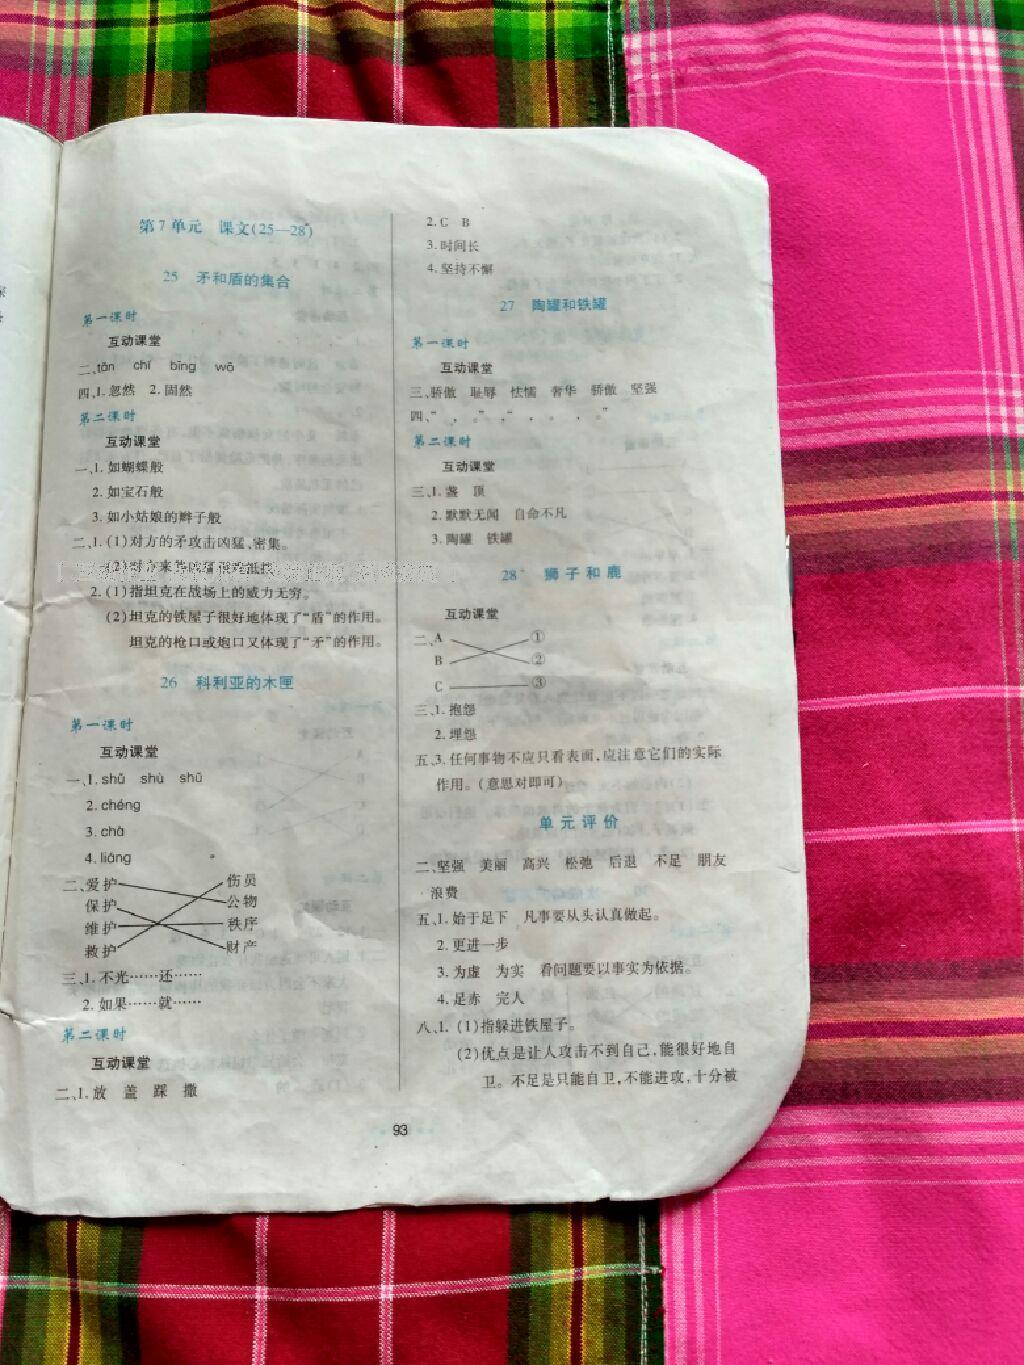 第7单元 课文(25—28*)
25 矛和盾的集合
第一课时
互动课堂
二、tān chí bīng wō
四、1. 忽然 2. 固然
第二课时
互动课堂
一、1. 如蝴蝶般
2. 如宝石般
3. 如小姑娘的辫子般
二、1. (1)对方的矛攻击凶猛、密集。
2. (1)指坦克在战场上的威力无穷。
(2)坦克的铁屋子很好地体现了“盾”的作用。
坦克的枪口或炮口又体现了“矛”的作用。
26 科利亚的木匣
第一课时
互动课堂
一、1. shǔ shù shū
2. chéng
3. chà
4. liáng
二、爱护 伤员
保护 公物
维护 秩序
救护 财产
三、1. 不光……还……
2. 如果……就……
第二课时
互动课堂
二、1. 放 盖 踩 撒
93
2. C B
3. 时间长
4. 坚持不懈
27 陶罐和铁罐
第一课时
互动课堂
三、骄傲 耻辱 怯懦 奢华 骄傲 坚强
四、“ , 。” “ , 。 , 。”
第二课时
互动课堂
三、1. 盏 顶
2. 默默无闻 自命不凡
3. 陶罐 铁罐
28* 狮子和鹿
互动课堂
二、A ①
B ②
C ③
三、1. 抱怨
2. 埋怨
五、3. 任何事物不应只看表面,应注意它们的实际
作用。(意思对即可)
单元评价
二、坚强 美丽 高兴 松弛 后退 不足 朋友
浪费
五、1. 始于足下 凡事要从头认真做起。
2. 更进一步
3. 为虚 为实 看问题要以事实为依据。
4. 足赤 完人
八、1. (1)指躲进铁屋子。
(2)优点是让人攻击不到自己,能很好地自
卫。不足是只能自卫,不能进攻,十分被